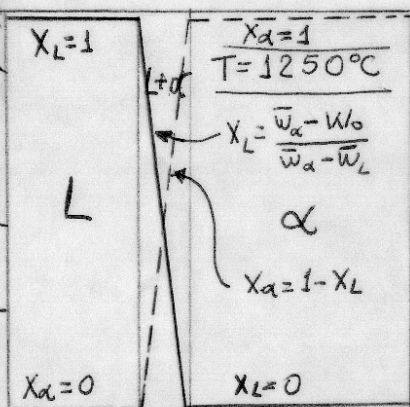 X_L=1
X_α=1
T=1250°C
L+α
X_L = (w̄_α - W_0)/(w̄_α - w̄_L)
L
α
X_α=1-X_L
X_α=0
X_L=0